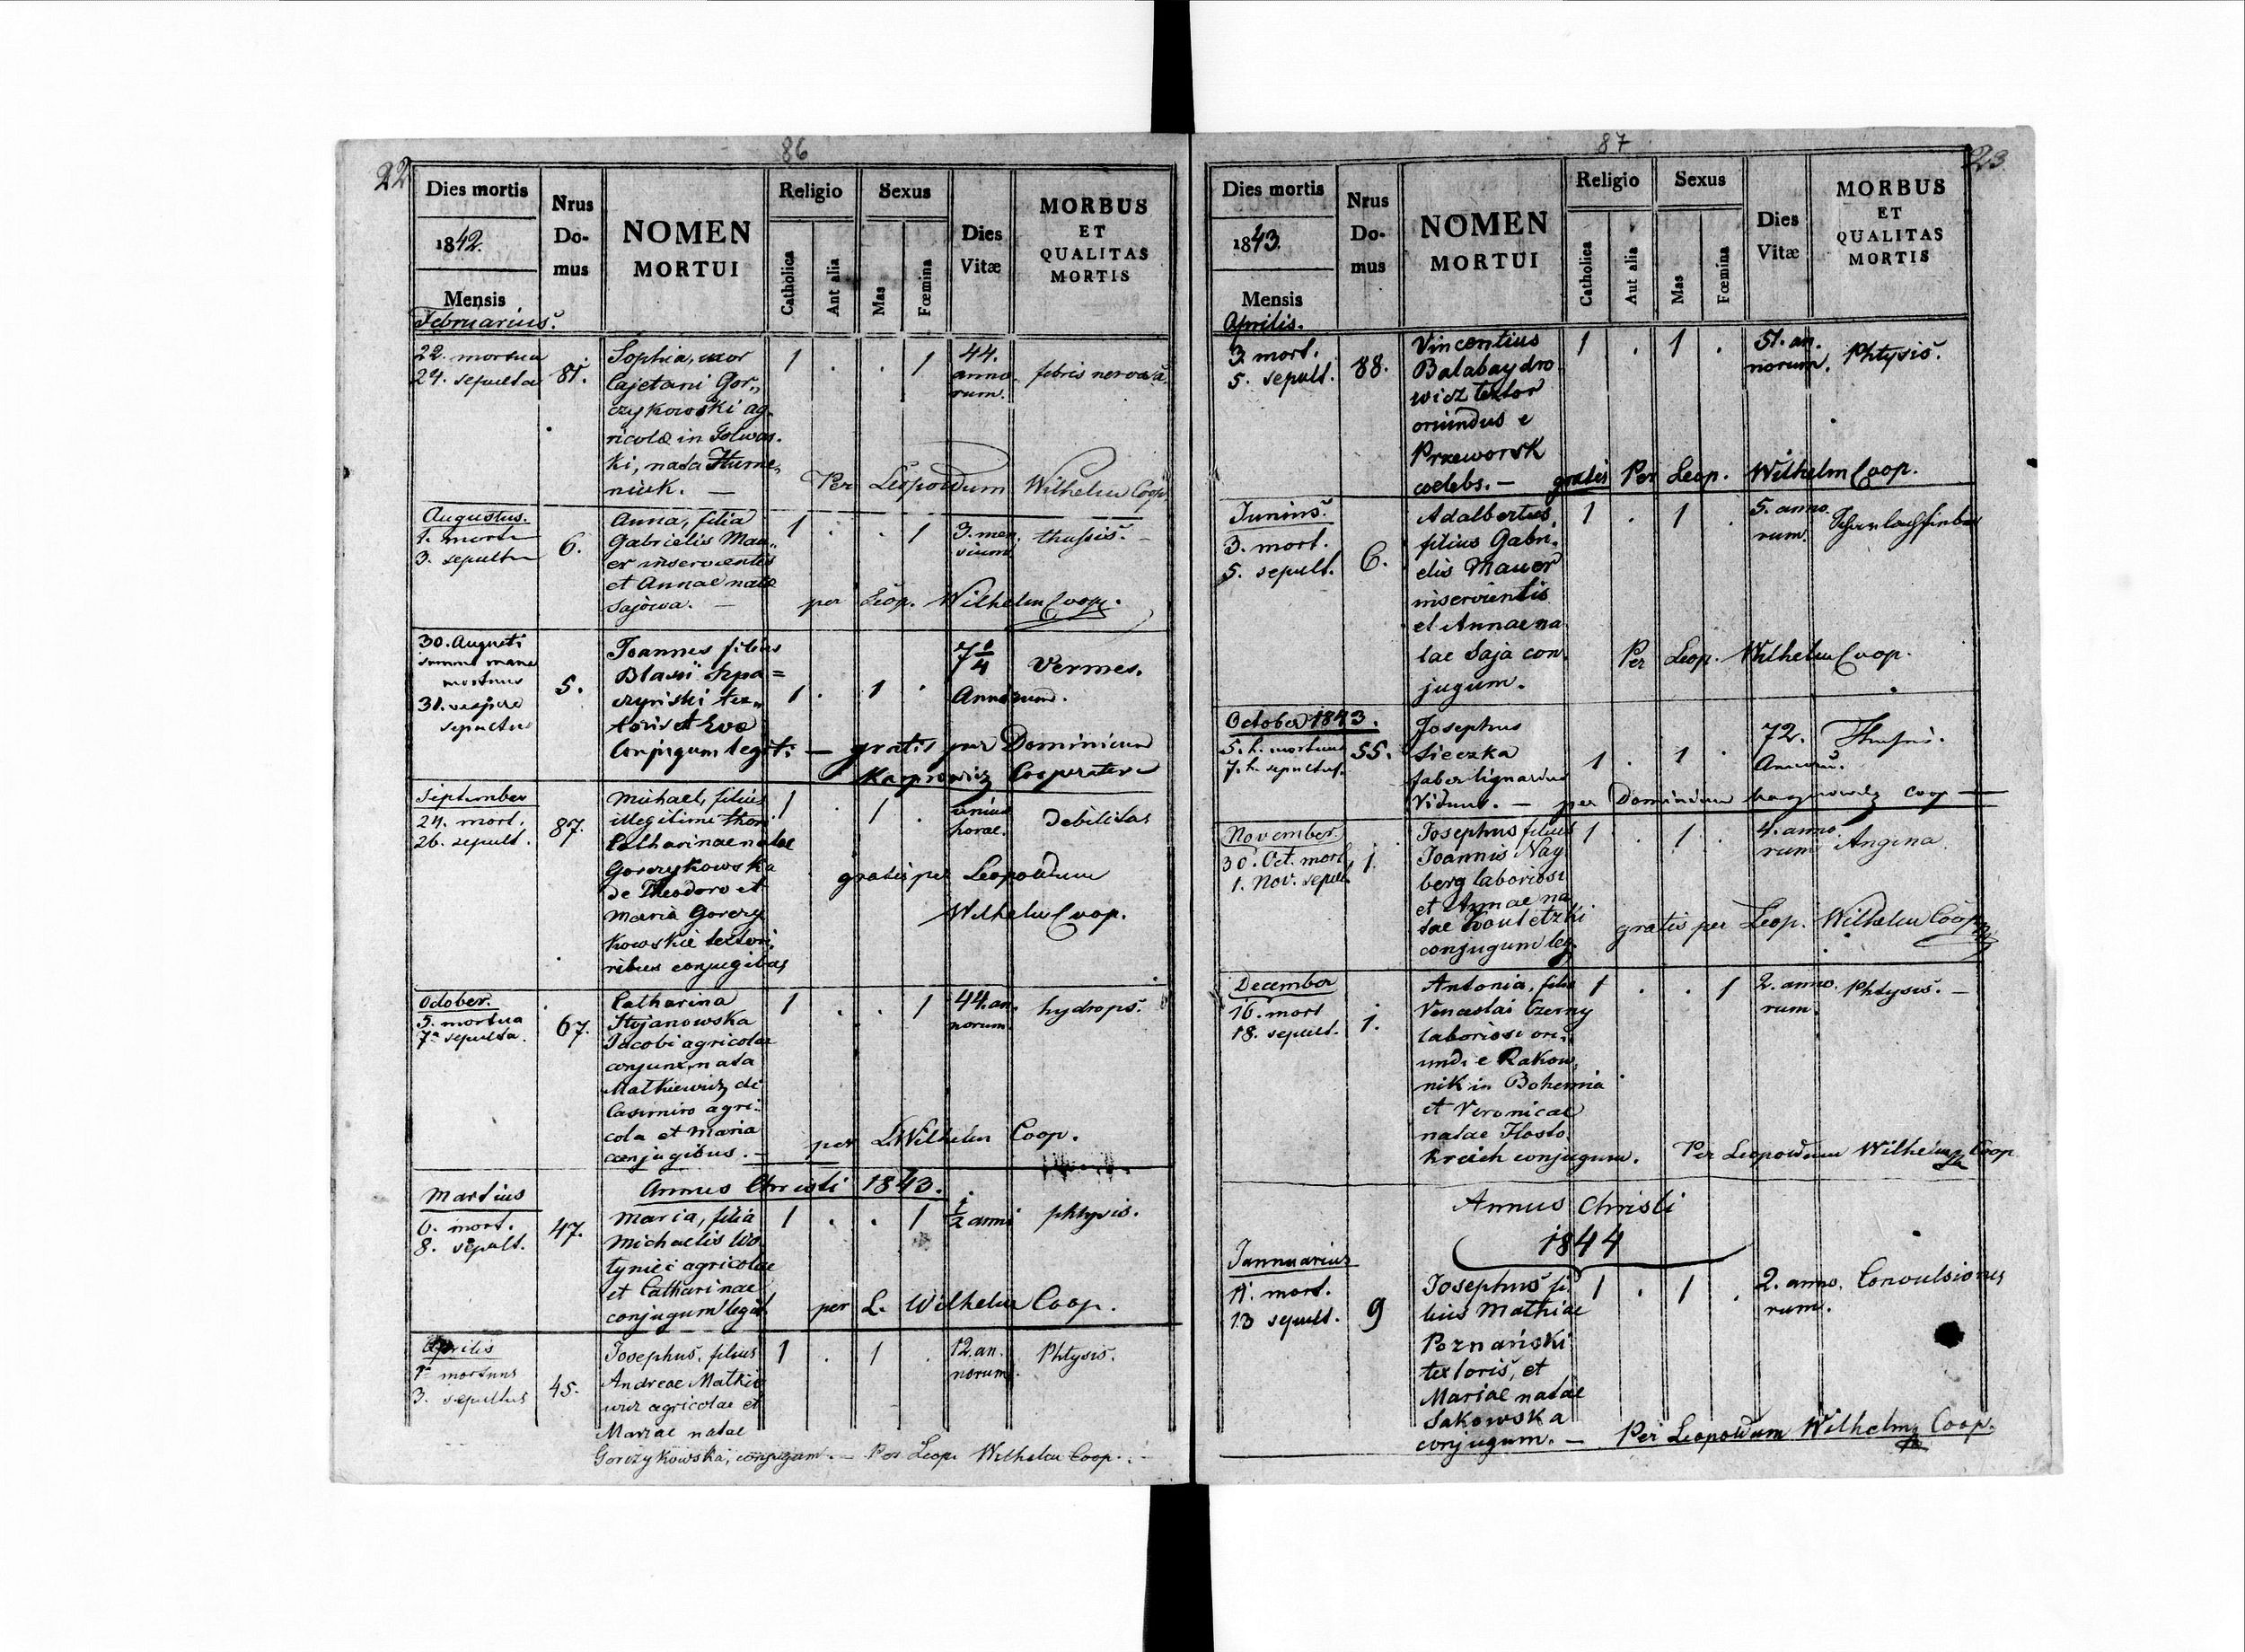 86
22
Dies mortis
1842.
Mensis
Februarius.
Nrus
Do-
mus
NOMEN
MORTUI
Religio
Catholica
Aut alia
Sexus
Mas
Fœmina
Dies
Vitæ
MORBUS
ET
QUALITAS
MORTIS
22. mortua
24. sepulta
81.
Sophia, uxor
Cajetani Gor„
czykowski ag„
ricolæ in
ki, nata
niuk. —
1 . . 1
44.
anno„
rum.
febris nervosa.
Per Leopoldum Wilhelm Coop.
Augustus.
1. mortua
3. sepulta
6.
Anna, filia
Gabrielis Mau„
er inservientis
et Annae natae
Sajowa. —
1 . . 1
3. men„
sium
thussis. —
per Leop. Wilhelm Coop.
30. Augusti
summo mane
mortuus
31. vespere
sepultus
5.
Joannes filius
Blasii Szpa=
czyński tex„
toris et Eva
Conjugum legit: — gratis per Dominicum
Karprowicz Cooperatore
1 . 1 .
Annorum.
Vermes.
September
24. mort.
26. sepult.
87.
Michael, filius
illegitimi thori
Catharinae natae
Gorczykowska
de Theodoro et
Maria Gorczy
kowskie textori„
ribus conjugibus
1 . 1 .
unius
horae.
Debilitas
gratis per Leopoldum
Wilhelm Coop.
October.
5. mortua
7a sepulta.
67.
Catharina
Stojanowska
Jacobi agricolae
conjunx, nata
Matkiewicz de
Casimiro agri„
cola et Maria
conjugibus. —
1 . . 1
44. an„
norum.
hydrops.
per L. Wilhelm Coop.
Annus Christi 1843.
Martius
6. mort.
8. sepult.
47.
Maria, filia
Michaelis Wo
tyniec agricolae
et Catharinae
conjugum legit.
1 . . 1
½ anni
phtysis.
per L. Wilhelm Coop.
Aprilis
1a mortuus
3. sepultus
45.
Josephus, filius
Andreae Matkie
wicz agricolae et
Mariae natae
Gorczykowska, conjugum. — Per Leop. Wilhelm Coop. —
1 . 1 .
12. an„
norum.
Phtysis.
87
23
Dies mortis
1843.
Mensis
Aprilis.
Nrus
Do-
mus
NOMEN
MORTUI
Religio
Catholica
Aut alia
Sexus
Mas
Fœmina
Dies
Vitæ
MORBUS
ET
QUALITAS
MORTIS
3. mort.
5. sepult.
88.
Vincentius
Balabaydro
wicz textor
oriundus e
Przeworsk
coelebs. —
1 . 1 .
51. an„
norum.
Phtysis.
gratis Per Leop. Wilhelm Coop.
Junius.
3. mort.
5. sepult.
6.
Adalbertus,
filius Gabri„
elis Mauer
inservientis
et Annae na
tae Saja con„
jugum.
1 . 1 .
5. anno
rum.
Per Leop. Wilhelm Coop.
October 1843.
5. h. mortuus
7. h. sepultus.
55.
Josephus
Sieczka
faber lignarius
Viduus. — per Dominicum Karprowicz Coop —
1 . 1 .
72.
Annorum.
November.
30. Oct. mort.
1. Nov. sepult.
1.
Josephus filius
Joannis Nay
berg laboriosi
et Annae na
tae
conjugum leg.
1 . 1 .
4. anno
rum
Angina.
gratis per Leop. Wilhelm Coop.
December
16. mort
18. sepult.
1.
Antonia, filia
Venceslai Czerny
laboriosi ori„
undi e Rakow„
nik in Bohemia
et Veronicae
natae Hosto„
kreich conjugum.
1 . . 1
2. anno„
rum.
Phtysis. —
Per Leopoldum Wilhelm Coop
Annus Christi
1844
Januarius
11. mort.
13 sepult.
9
Josephus fi„
lius Mathiae
Poznański
textoris, et
Mariae natae
Sakowska
conjugum. —
1 . 1 .
2. anno„
rum.
Convulsiones
Per Leopoldum Wilhelm Coop.